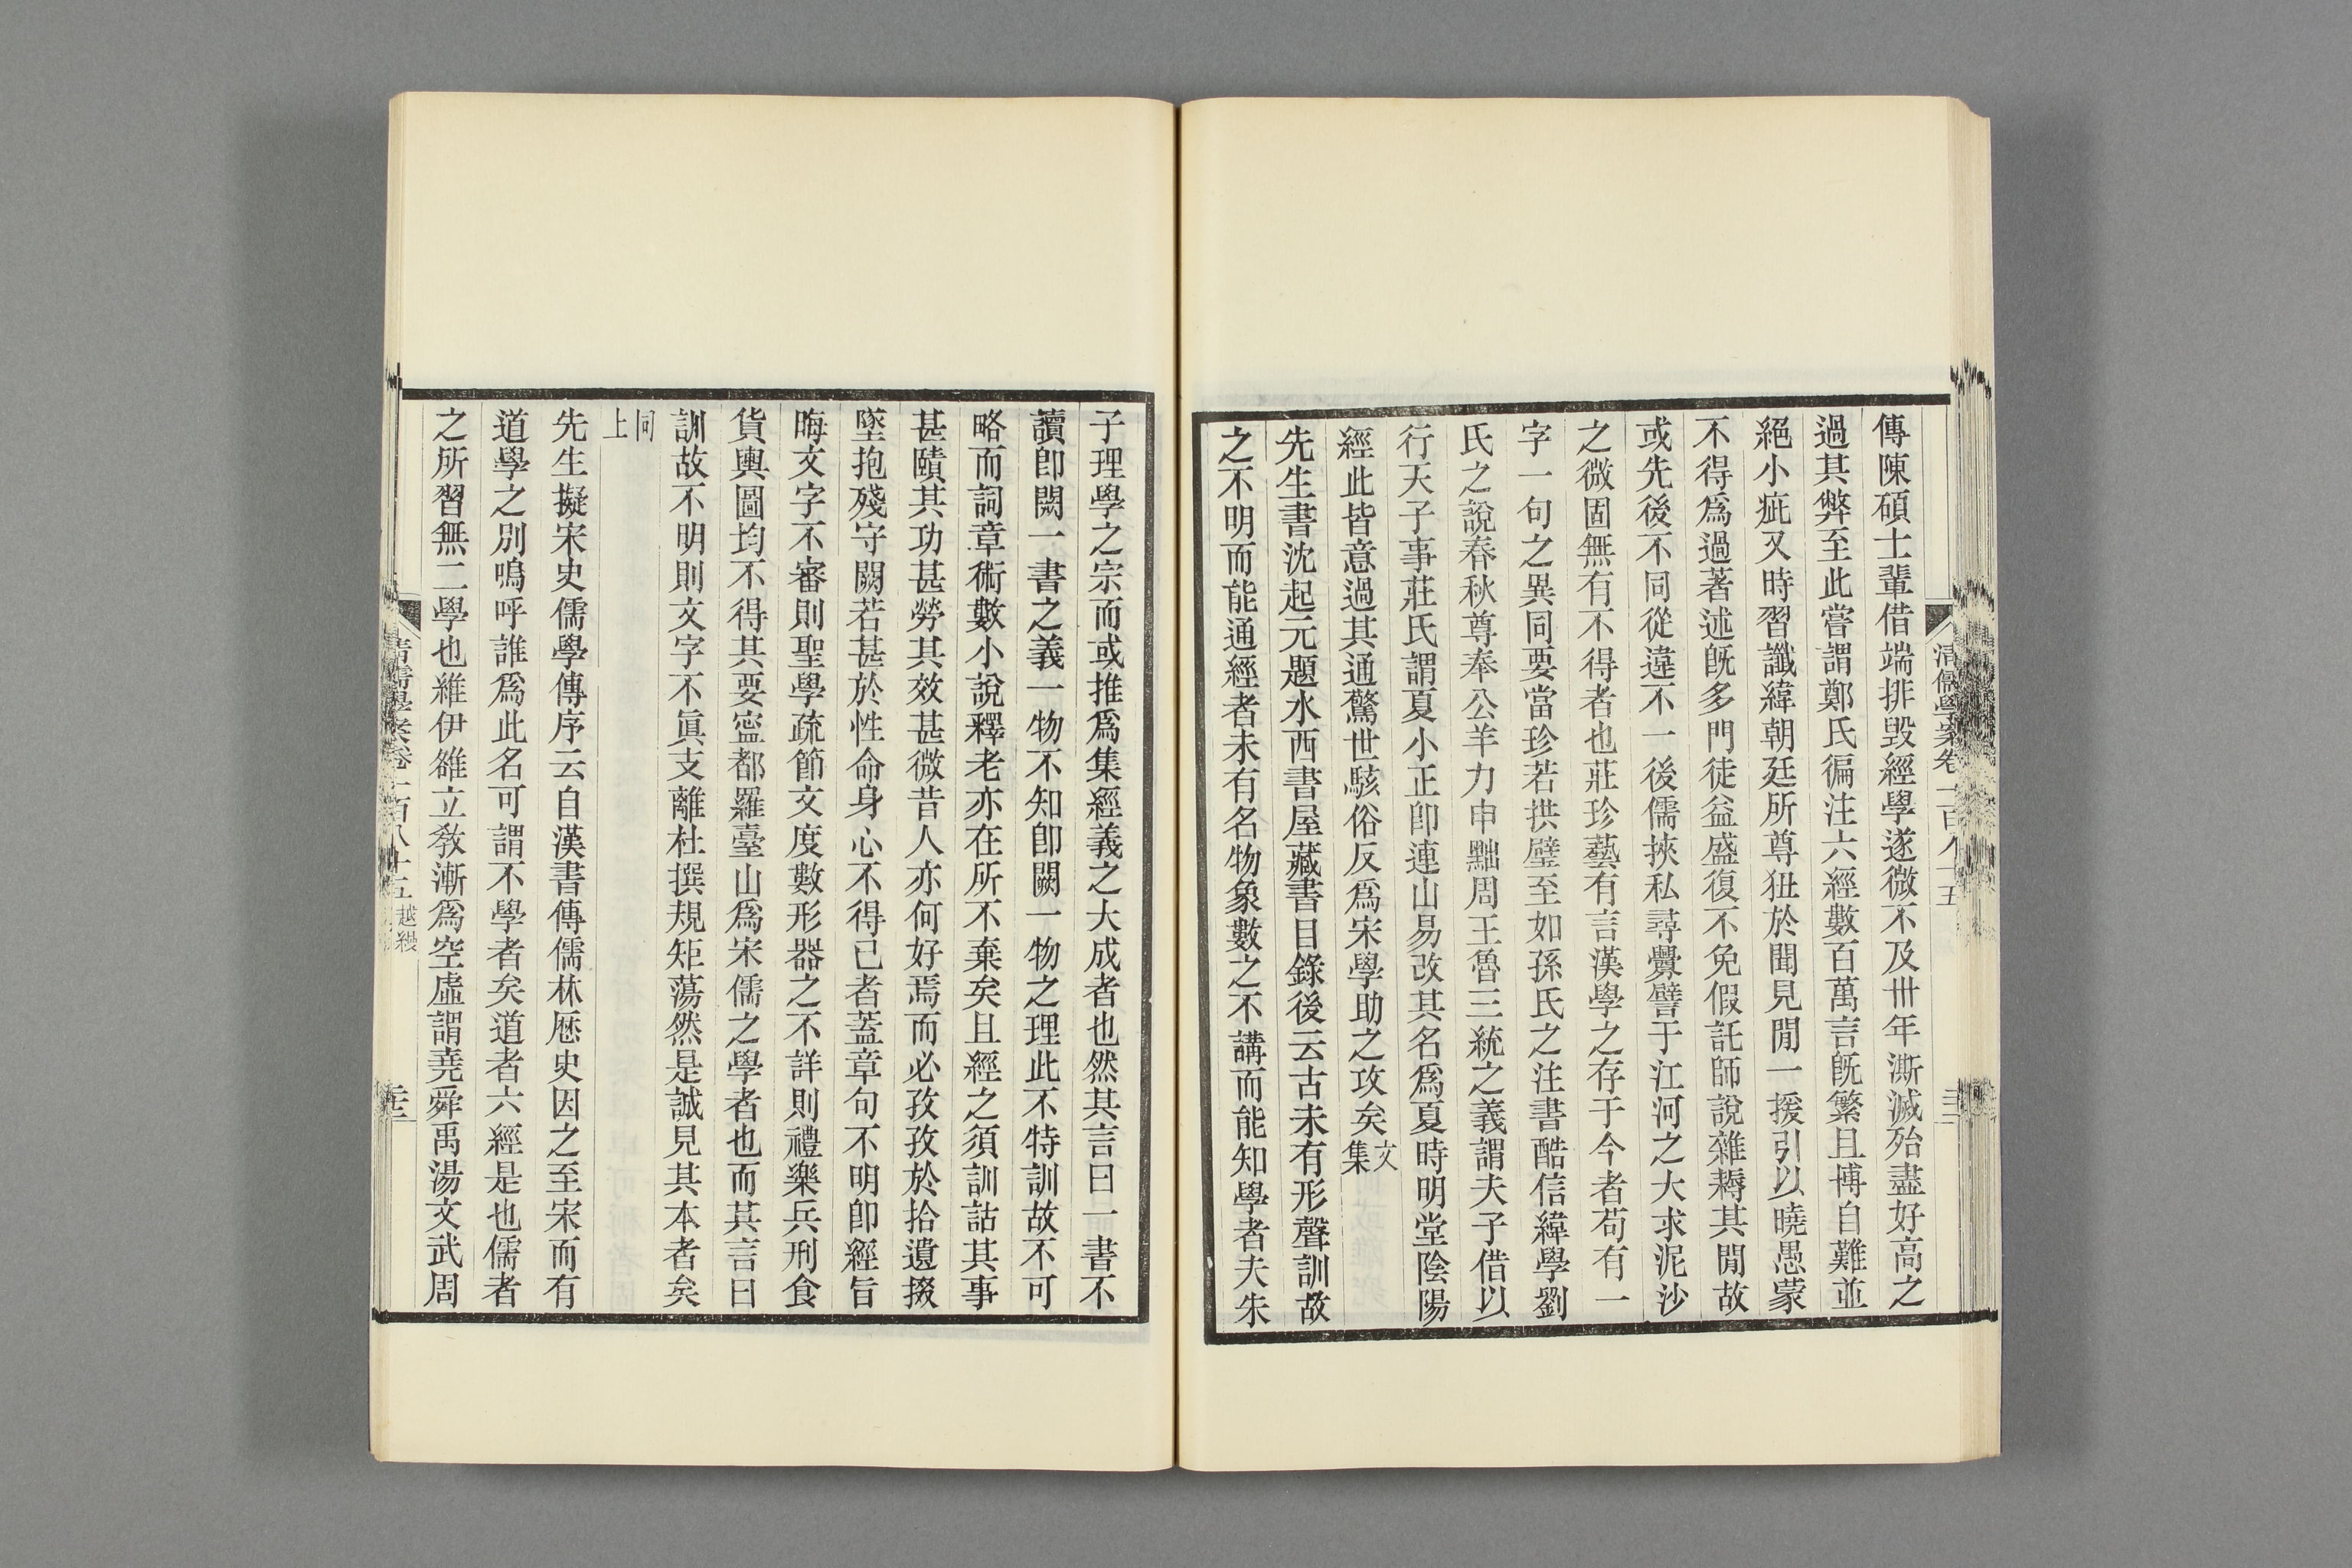 傳陳碩士輩借端排毀經學遂微不及卌年澌滅殆盡好高之
過其弊至此嘗謂鄭氏徧注六經數百萬言旣繁且博自難並
絕小疵又時習讖緯朝廷所尊狃於聞見閒一援引以曉愚蒙
不得爲過著述旣多門徒益盛復不免假託師說雜耨其閒故
或先後不同從違不一後儒挾私尋釁譬于江河之大求泥沙
之微固無有不得者也莊珍藝有言漢學之存于今者苟有一
字一句之異同要當珍若拱璧至如孫氏之注書酷信緯學劉
氏之說春秋尊奉公羊力申黜周王魯三統之義謂夫子借以
行天子事莊氏謂夏小正卽連山易改其名爲夏時明堂陰陽
經此皆意過其通驚世駭俗反爲宋學助之攻矣文集
先生書沈起元題水西書屋藏書目錄後云古未有形聲訓故
之不明而能通經者未有名物象數之不講而能知學者夫朱
子理學之宗而或推爲集經義之大成者也然其言曰一書不
讀卽闕一書之義一物不知卽闕一物之理此不特訓故不可
略而詞章術數小說釋老亦在所不棄矣且經之須訓詁其事
甚賾其功甚勞其效甚微昔人亦何好焉而必孜孜於拾遺掇
墜抱殘守闕若甚於性命身心不得已者蓋章句不明卽經旨
晦文字不審則聖學疏節文度數形器之不詳則禮樂兵刑食
貨輿圖均不得其要寍都羅臺山爲宋儒之學者也而其言曰
訓故不明則文字不眞支離杜撰規矩蕩然是誠見其本者矣
同上
先生擬宋史儒學傳序云自漢書傳儒林厯史因之至宋而有
道學之別嗚呼誰爲此名可謂不學者矣道者六經是也儒者
之所習無二學也雖伊雒立敎漸爲空虛謂堯舜禹湯文武周
清儒學案卷一百八十五 越縵